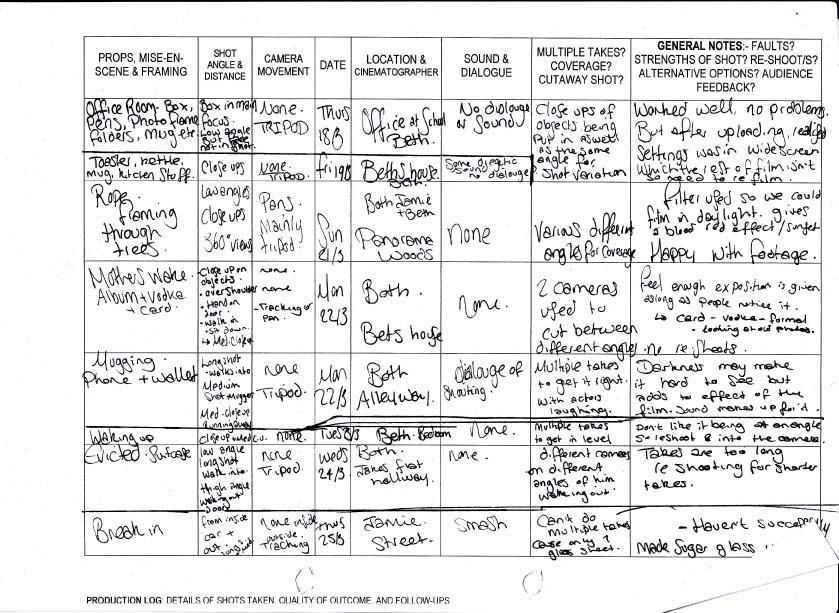 PROPS, MISE-EN-
SCENE & FRAMING
SHOT
ANGLE &
DISTANCE
CAMERA
MOVEMENT
DATE
LOCATION &
CINEMATOGRAPHER
SOUND &
DIALOGUE
MULTIPLE TAKES?
COVERAGE?
CUTAWAY SHOT?
GENERAL NOTES:- FAULTS?
STRENGTHS OF SHOT? RE-SHOOT/S?
ALTERNATIVE OPTIONS? AUDIENCE
FEEDBACK?
Office Room- Box,
Pens, Photo frame
folders, mug etc.
Box in main
focus.
Low angle
not in shot.
None.
TRIPOD
Thurs
18/3
Office at School
Beth.
No dialouge
or Sound
Close ups of
objects being
Put in aswell
as the same
angle for
Shot variation
Worked well, no problems.
But after uploading, realised
Settings was in wide screen
Which the rest of film isn't
so need to re film.
Toaster, kettle,
mug, kitchen stuff.
Close ups
None.
Tripod.
Fri 19/3
Beths house.
Beth
Some diegetic
Sound
no dialouge
Rope
framing
through
trees
Low angles
Close ups
360° views
Pans.
Mainly
tripod.
Sun
21/3
Both Jamie
+ Beth
Panorama
Woods
None
Various different
angles for coverage
Filter used so we could
film in daylight. gives
a blood red effect/sunset
Happy with footage.
Mothers Wake.
Album + vodka
+ card.
Close up on
objects.
• over shoulder
• Hand on
door.
• Walk in
• sit down.
↳ Med. close up
none.
none
- Tracking or
Pan.
Mon
22/3
Both.
Bets house
None.
2 cameras
used to
cut between
different angles
Feel enough exposition is given
aslong as people notice it.
↳ card - vodka - formal
- looking at old photos.
no re shoots.
Mugging.
Phone + wallet
Long shot
- walks into
Medium
Shot mugger
Med-close up
running away
none
Tripod.
Mon
22/3
Both
Alleyway.
dialouge of
Shouting.
Multiple takes
to get it right.
With actors
laughing.
Darkness may make
it hard to see but
adds to effect of the
film. Sound makes up for it.
Waking up
Close up + Med c.u.
none.
Beth. Bedroom
None.
Multiple takes
to get in level
Don't like it being at an angle
So reshoot & into the camera.
Evicted. Suitcase
low angle
long shot
walk into
• High angle
walking out
doors
none
Tripod.
weds
24/3
Both.
Jakes flat
hallway.
none.
different cameras
on different
angles of him
walking out.
Takes are too long
re shooting for shorter
takes.
Break in
from inside
car +
out.
None inside
outside.
Tracking
Thurs
25/3
Jamie.
Street.
Smash
Can't do
multiple takes
Case only 1
glass sheet.
- Haven't
Made Sugar glass
PRODUCTION LOG: DETAILS OF SHOTS TAKEN, QUALITY OF OUTCOME, AND FOLLOW-UPS